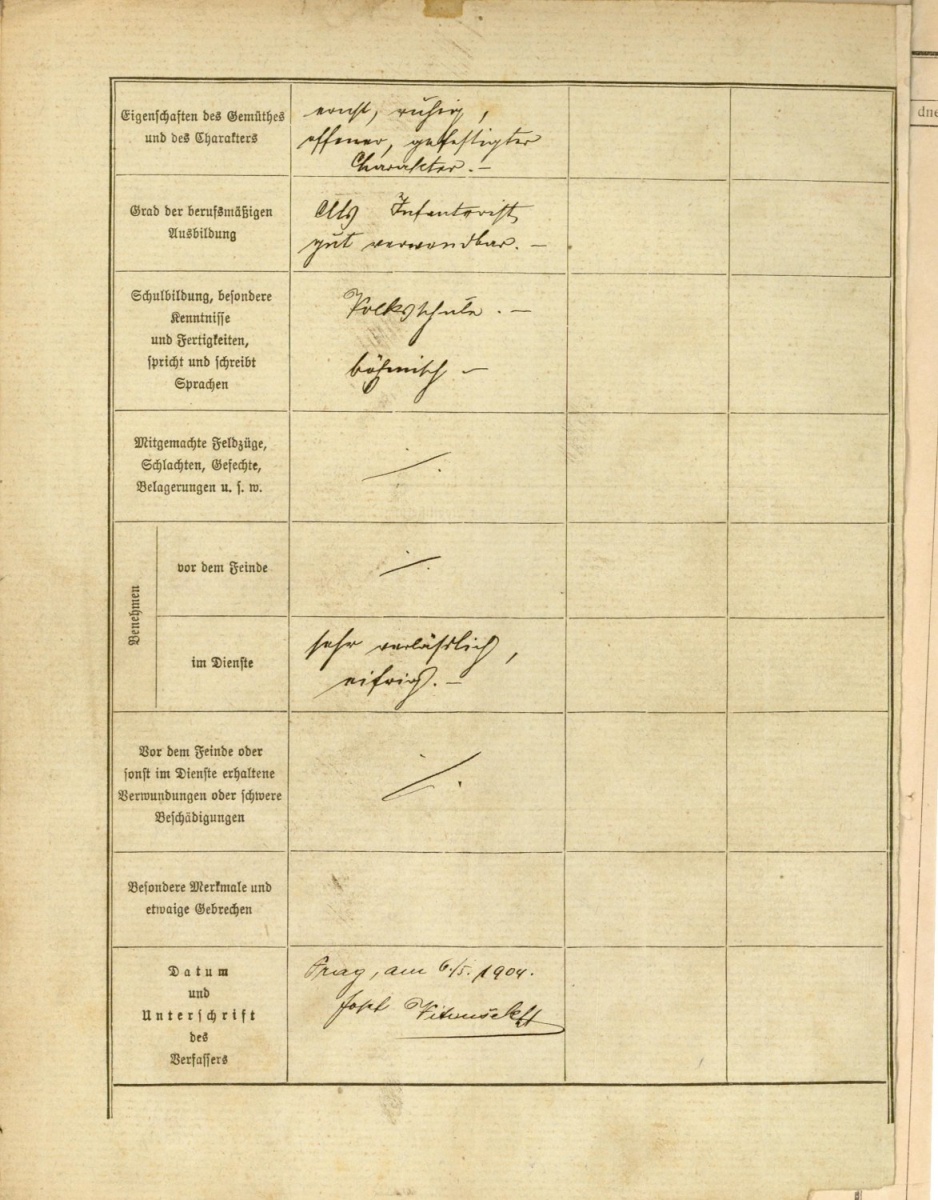 Eigenschaften des Gemüthes
und des Charakters
ernst, ruhig,
offener, gefestigter
Charakter. —
Grad der berufsmäßigen
Ausbildung
Als Infanterist
gut verwendbar. —
Schulbildung, besondere
Kenntnisse
und Fertigkeiten,
spricht und schreibt
Sprachen
Volksschule. —
böhmisch —
Mitgemachte Feldzüge,
Schlachten, Gefechte,
Belagerungen u. s. w.
Benehmen
vor dem Feinde
im Dienste
sehr verläßlich,
eifrig. —
Vor dem Feinde oder
sonst im Dienste erhaltene
Verwundungen oder schwere
Beschädigungen
Besondere Merkmale und
etwaige Gebrechen
Datum
und
Unterschrift
des
Verfassers
Prag, am 6./5. 1904.
Josef
dne